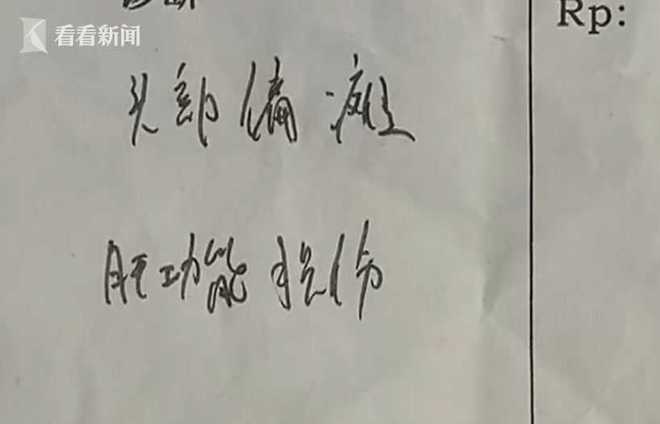 看看新闻
Rp:
头部偏瘫
肝功能损伤